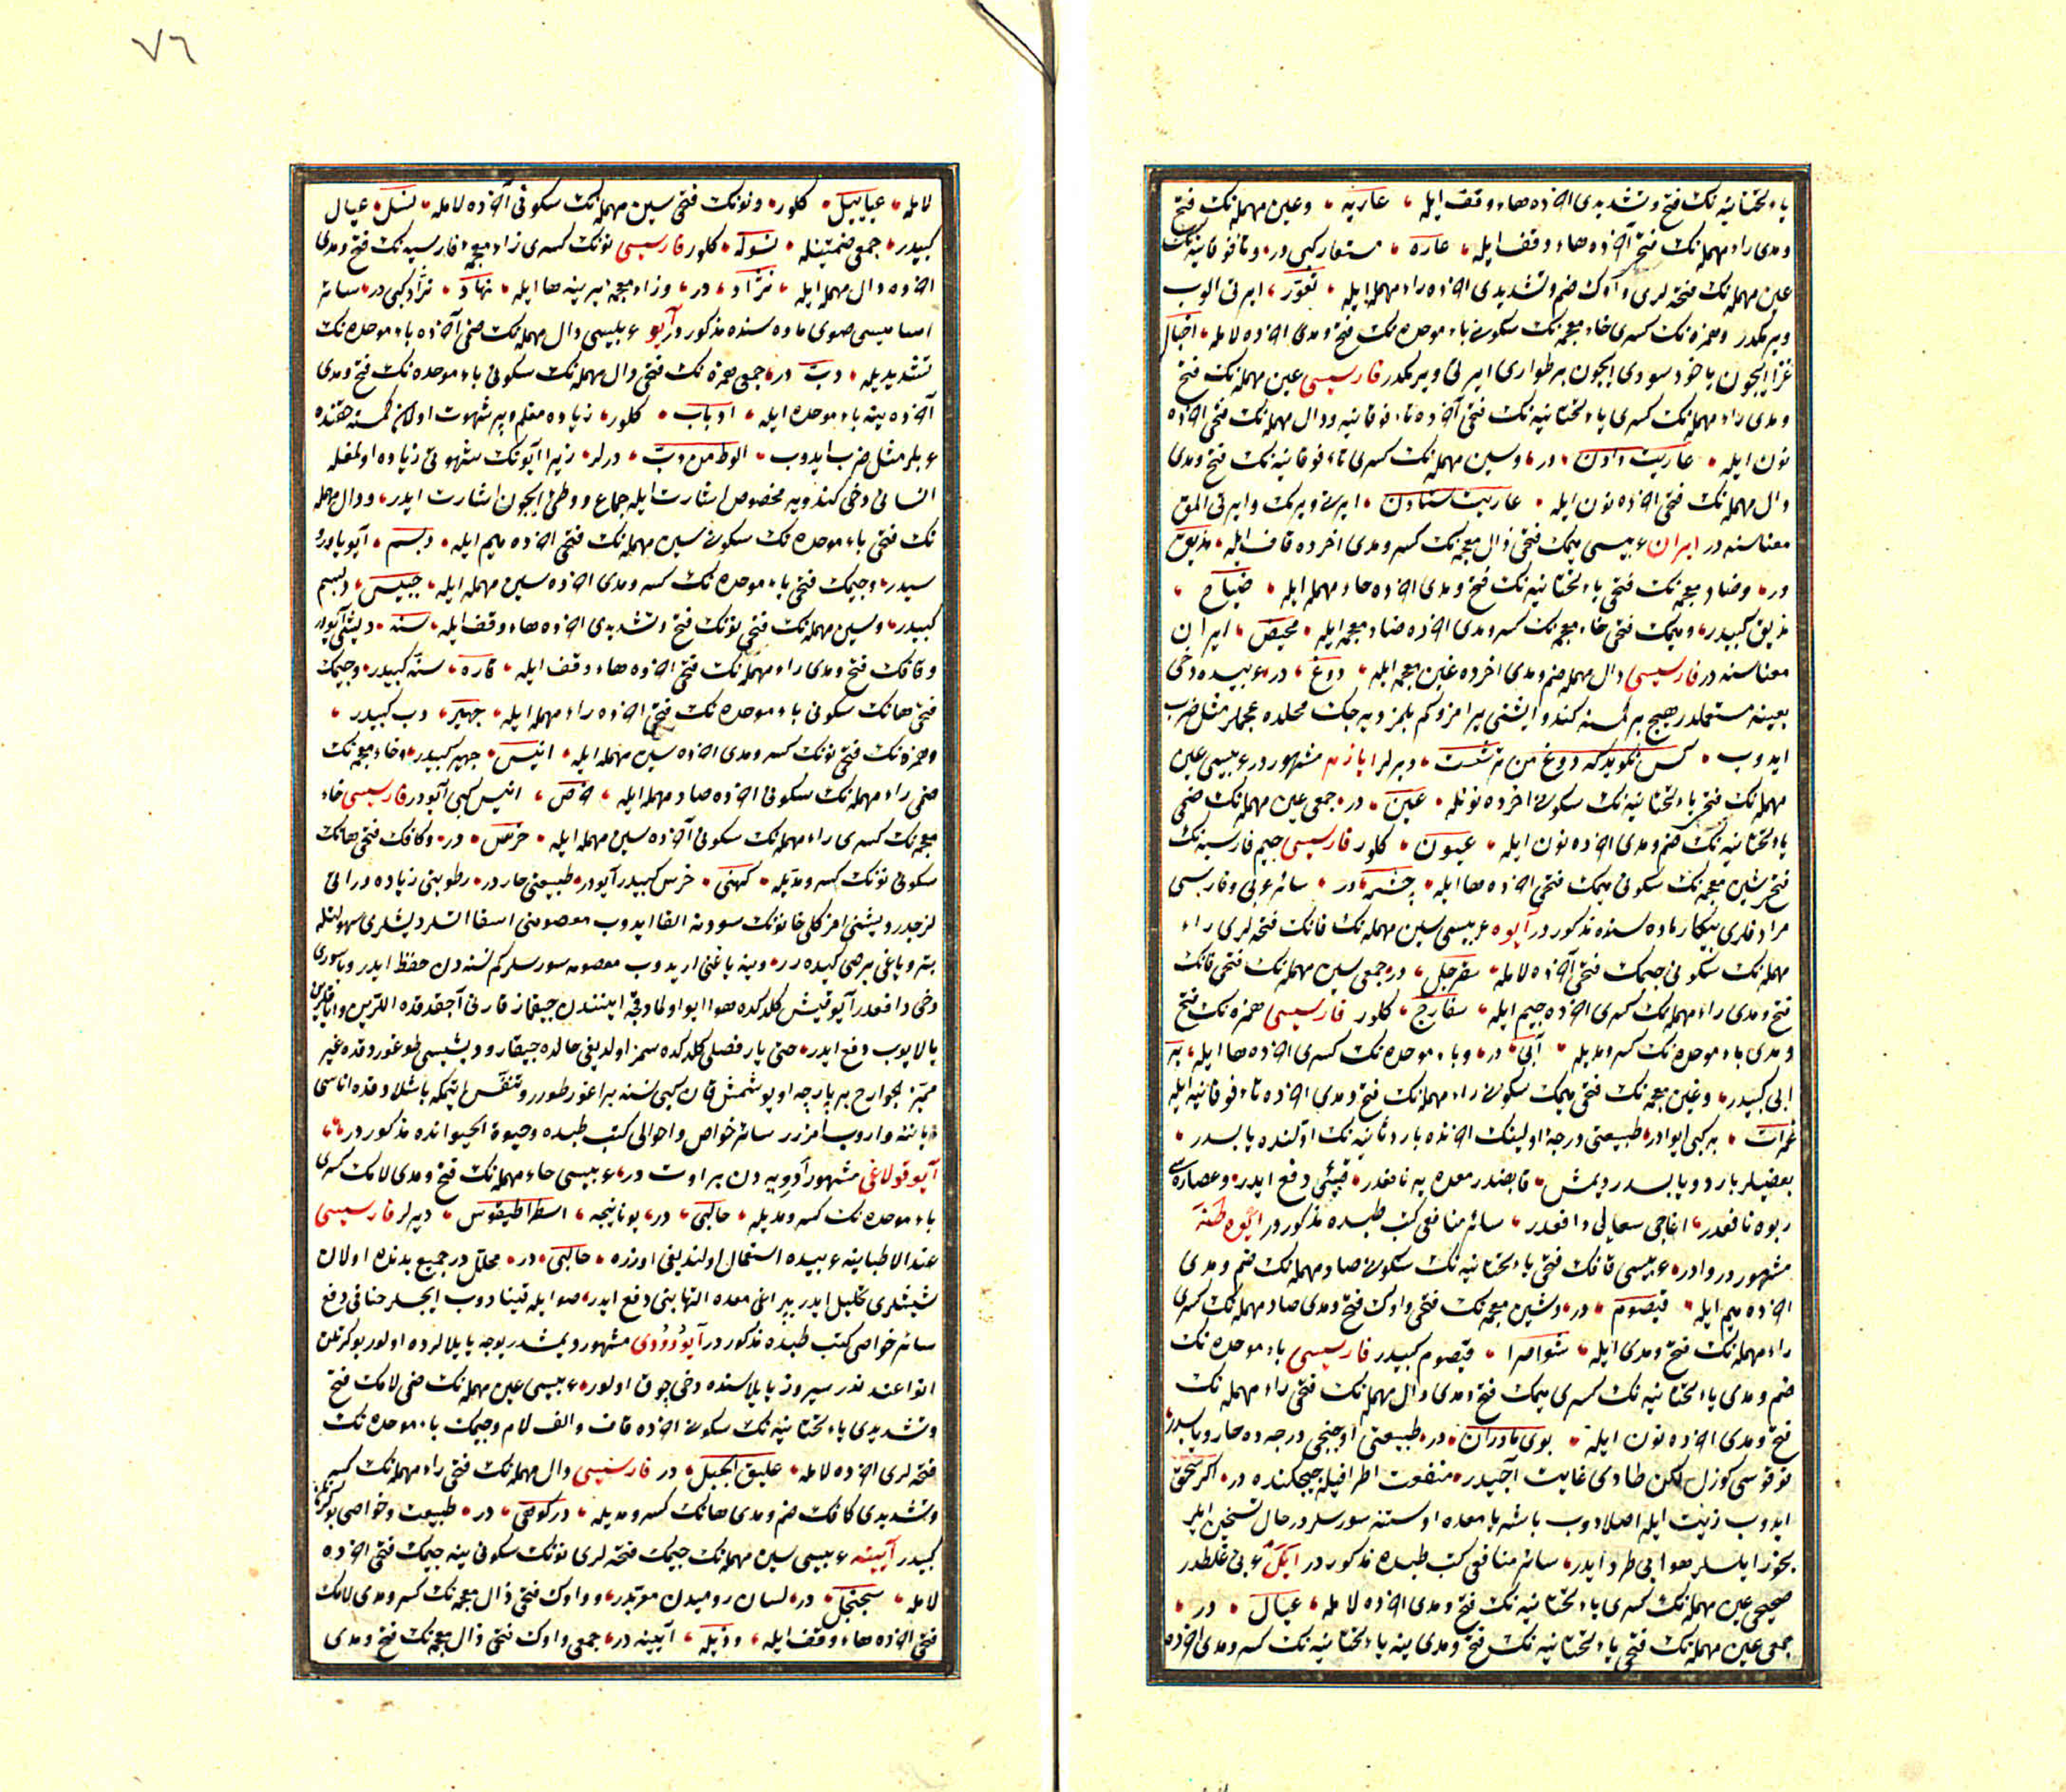 یاء تحتانیه نك فتح و تشدیدی اخرده هاء وقف ایله عاریّه و عین مهمله نك فتح
و مدی راء مهمله نك فتحی آخرده هاء وقف ایله عاره مستعار کبی در و تاء فوقانیه نك
عین مهمله نك فتحه لری و آوك ضم و تشدیدی اخرده راء مهمله ایله تعوّر ایرتی الوب
ویرمکدر و همزه نك کسری خاء معجمه نك سکونی باء موحده نك فتح و مدی اخرده لامله اخبال
غزا ایچون یاخود سودی ایچون بر طواری ایرتی ویرمکدر فارسیسی عین مهمله نك فتح
و مدی راء مهمله نك کسری یاء تحتانیه نك فتحی آخرده تاء فوقانیه و دال مهمله نك فتحی اخرده
نون ایله عاریت دادن در و سین مهمله نك کسری تاء فوقانیه نك فتح و مدی
دال مهمله نك فتحی اخرده نون ایله عاریت ستادن ایرتی ویرمك و ایرتی المق
معناسنه در ایران عربیسی میمك فتحی ذال معجمه نك کسر و مدی اخرده قاف ایله مذیق
در و ضاد معجمه نك فتحی یاء تحتانیه نك فتح و مدی اخرده حاء مهمله ایله ضیاح
مذیق کبیدر و میمك فتحی خاء معجمه نك کسر و مدی اخرده ضاد معجمه ایله مخیض ایران
معناسنه در فارسیسی دال مهمله ضم و مدی اخرده غین معجمه ایله دوغ در عربیده دخی
بعینه مستعملدر هیچ بر کمسنه کندو ایشنی یرامز و کم بلمز دیه جك محلده عجملر مثل ضرب
ایدوب کس نکوید که دوغ من ترشست دیرلر ایازم مشهوردر عربیسی عین
مهمله نك فتحی یاء تحتانیه نك سکونی اخرده نونله عین در جمعی عین مهمله نك ضمی
یاء تحتانیه نك ضم و مدی اخرده نون ایله عیون کلور فارسیسی جیم فارسیه نك
فتحی شین معجمه نك سکونی میمك فتحی اخرده ها ایله چشمه در سائر عربی و فارسی
مرادفلری بیکار ماده سنده مذکوردر آیوه عربیسی سین مهمله نك فانك فتحه لری راء
مهمله نك سکونی جیمك فتحی آخرده لامله سفرجل در جمعی سین مهمله نك فتحی فانك
فتح و مدی راء مهمله نك کسری اخرده جیم ایله سفارج کلور فارسیسی همزه نك فتح
و مدی باء موحده نك کسر و مدیله آبی در و باء موحده نك کسری اخرده ها ایله به
ابی کبیدر و غین معجمه نك فتحی میمك سکونی راء مهمله نك فتح و مدی اخرده تاء فوقانیه ایله
غمرات به کبی ایوادر طبیعتی درجۀ اولینك اخرنده بارد ثانیه نك اوّلنده یابسدر
بعضیلر بارد و یابسدر دیمش قابضدر معده یه نافعدر قیئی دفع ایدر و عصاره سی
ربوه نافعدر اغاجی سعالی دافعدر سائر منافعی کتب طبده مذکوردر
مشهور دوادر عربیسی قافك فتحی یاء تحتانیه نك سکونی صاد مهمله نك ضم و مدی
اخرده میم ایله قیصوم در و شین معجمه نك فتحی واوك فتح و مدی صاد مهمله نك کسری
راء مهمله نك فتح و مدی ایله شواصرا قیصوم کبیدر فارسیسی باء موحده نك
ضم و مدی یاء تحتانیه نك کسری میمك فتح و مدی دال مهمله نك فتحی راء مهمله نك
فتح و مدی اخرده نون ایله بوی مادران در طبیعتی اوچنجی درجه ده حار و یابسدر
قوقوسی کوزل لکن طادی غایت آجیدر منفعت اطرافیله چیچکنده در اکر سحق
ایدوب زیت ایله اصلادوب باشه یا معده اوستنه سورسلر در حال تسخین ایلر
بخور ایلسلر هوامی طرد ایدر سائر منافعی کتب طبده مذکوردر ایکل عربی غلطدر
صحیحی عین مهمله نك کسری یاء تحتانیه نك فتح و مدی اخرده لامله عیال در
جمعی عین مهمله نك فتحی یاء تحتانیه نك فتح و مدی ینه یاء تحتانیه نك کسر و مدی اخرده
٧٦
لامله عیاییل کلور و نونك فتحی سین مهمله نك سکونی آخرده لامله نسل عیال
کبیدر جمعی ضمتینله نسوله کلور فارسیسی نونك کسری زاء معجمۀ فارسیه نك فتح و مدی
اخرده دال مهمله ایله نژاد در و زاء معجمه یرینه ها ایله نهاد نژاد کبی در سائر
اسامیسی صوی ماده سنده مذکوردر آیو عربیسی دال مهمله نك ضمی آخرده باء موحده نك
تشدیدیله دبّ در جمعی همزه نك فتحی دال مهمله نك سکونی باء موحده نك فتح و مدی
آخرده ینه باء موحده ایله ادباب کلور زیاده مغلم و پر شهوت اولان کمسنه حقنده
عربلر مثل ضرب ایدوب الوط من دبّ درلر زیرا آیونك شهوتی زیاده اولمغله
انسانی دخی کندویه مخصوص اشارت ایله جماع و وطئ ایچون اشارت ایدر و دال مهمله
نك فتحی باء موحده نك سکونی سین مهمله نك فتحی اخرده میم ایله دبسم آیو یاورو
سیدر و جیمك فتحی باء موحده نك کسر و مدی اخرده سین مهمله ایله جبیس دبسم
کبیدر و سین مهمله نك فتحی نونك فتح و تشدیدی اخرده هاء وقف ایله سنّه دیشی آیودر
و قافك فتح و مدی راء مهمله نك فتحی اخرده هاء وقف ایله قاره سنّه کبیدر و جیمك
فتحی هانك سکونی باء موحده نك فتحی اخرده راء مهمله ایله جهبر دب کبیدر
و همزه نك فتحی نونك کسر و مدی اخرده سین مهمله ایله انیس جهبر کبیدر و خاء معجمه نك
ضمی راء مهمله نك سکونی اخرده صاد مهمله ایله خرص انیس کبی آیودر فارسیسی خاء
معجمه نك کسری راء مهمله نك سکونی آخرده سین مهمله ایله خرس در و کافك فتحی هانك
سکونی نونك کسر و مدّیله کهنی خرس کبیدر آیودر طبیعتی حاردر رطوبتی زیاده درانی
لزجدر و یشنی امزکلی خاتونك سودنه القا ایدوب معصومی اسقا اتسلر دیشلری سهولتله
بتر و یاغی برصی کیده رر وینه یاغنی اریدوب معصومه سورسلر کم نسنه دن حفظ ایدر و باسوری
دخی دافعدر آیو قیش کلدکده هوا ایو اولمادقجه اینندن چیقماز قارنی آجقدقده اللرین و ایاقلرین
یالایوب دفع ایدر حتی یاز فصلی کلدکده سمز اولدیغی حالده چیقار و دیشیسی طوغوردقده غیر
ممیّز الجوارح بر پارچه اویوشمش قان کبی نسنه براغور طورر و تنفّس ایتمکه باشلادقده اناسی
یاننه واروب امزرر سائر خواص و احوالی کتب طبده و حیوة الحیوانده مذکوردر
آیو قولاغی مشهور ادویه دن بر اوت در عربیسی حاء مهمله نك فتح و مدی لامك کسری
باء موحده نك کسر و مدیله حالبی در یونانیجه اسطراطیقوس دیرلر فارسیسی
عند الاطبا ینه عربیده استعمال اولندیغی اوزره حالبی در محلّل در جمیع بدنده اولان
شیشلری تحلیل ایدر یپراغی معده التهابنی دفع ایدر صو ایله قینادوب ایچسلر خناقی دفع
سائر خواصی کتب طبده مذکوردر آیو دودی مشهور دیمشدر یوجه یایلالرده اولور بوکرتلن
انواعندندر سیروز یایلاسنده دخی چوق اولور عربیسی عین مهمله نك ضمی لامك فتح
و تشدیدی یاء تحتانیه نك سکونی اخرده قاف و الف لام و جیمك باء موحده نك
فتحه لری اخرده لامله علیق الجبل در فارسیسی دال مهمله نك فتحی راء مهمله نك کسر
و تشدیدی کافك ضم و مدی هانك کسر و مدیله درکوهی در طبیعت و خواصی بوکرتلن
کبیدر آیینه عربیسی سین مهمله نك جیمك فتحه لری نونك سکونی ینه جیمك فتحی اخرده
لامله سجنجل در لسان رومیدن معرّبدر و واوك فتحی ذال معجمه نك کسر و مدی لامك
فتحی اخرده هاء وقف ایله وذیله آیینه در جمعی واوك فتحی ذال معجمه نك فتح و مدی